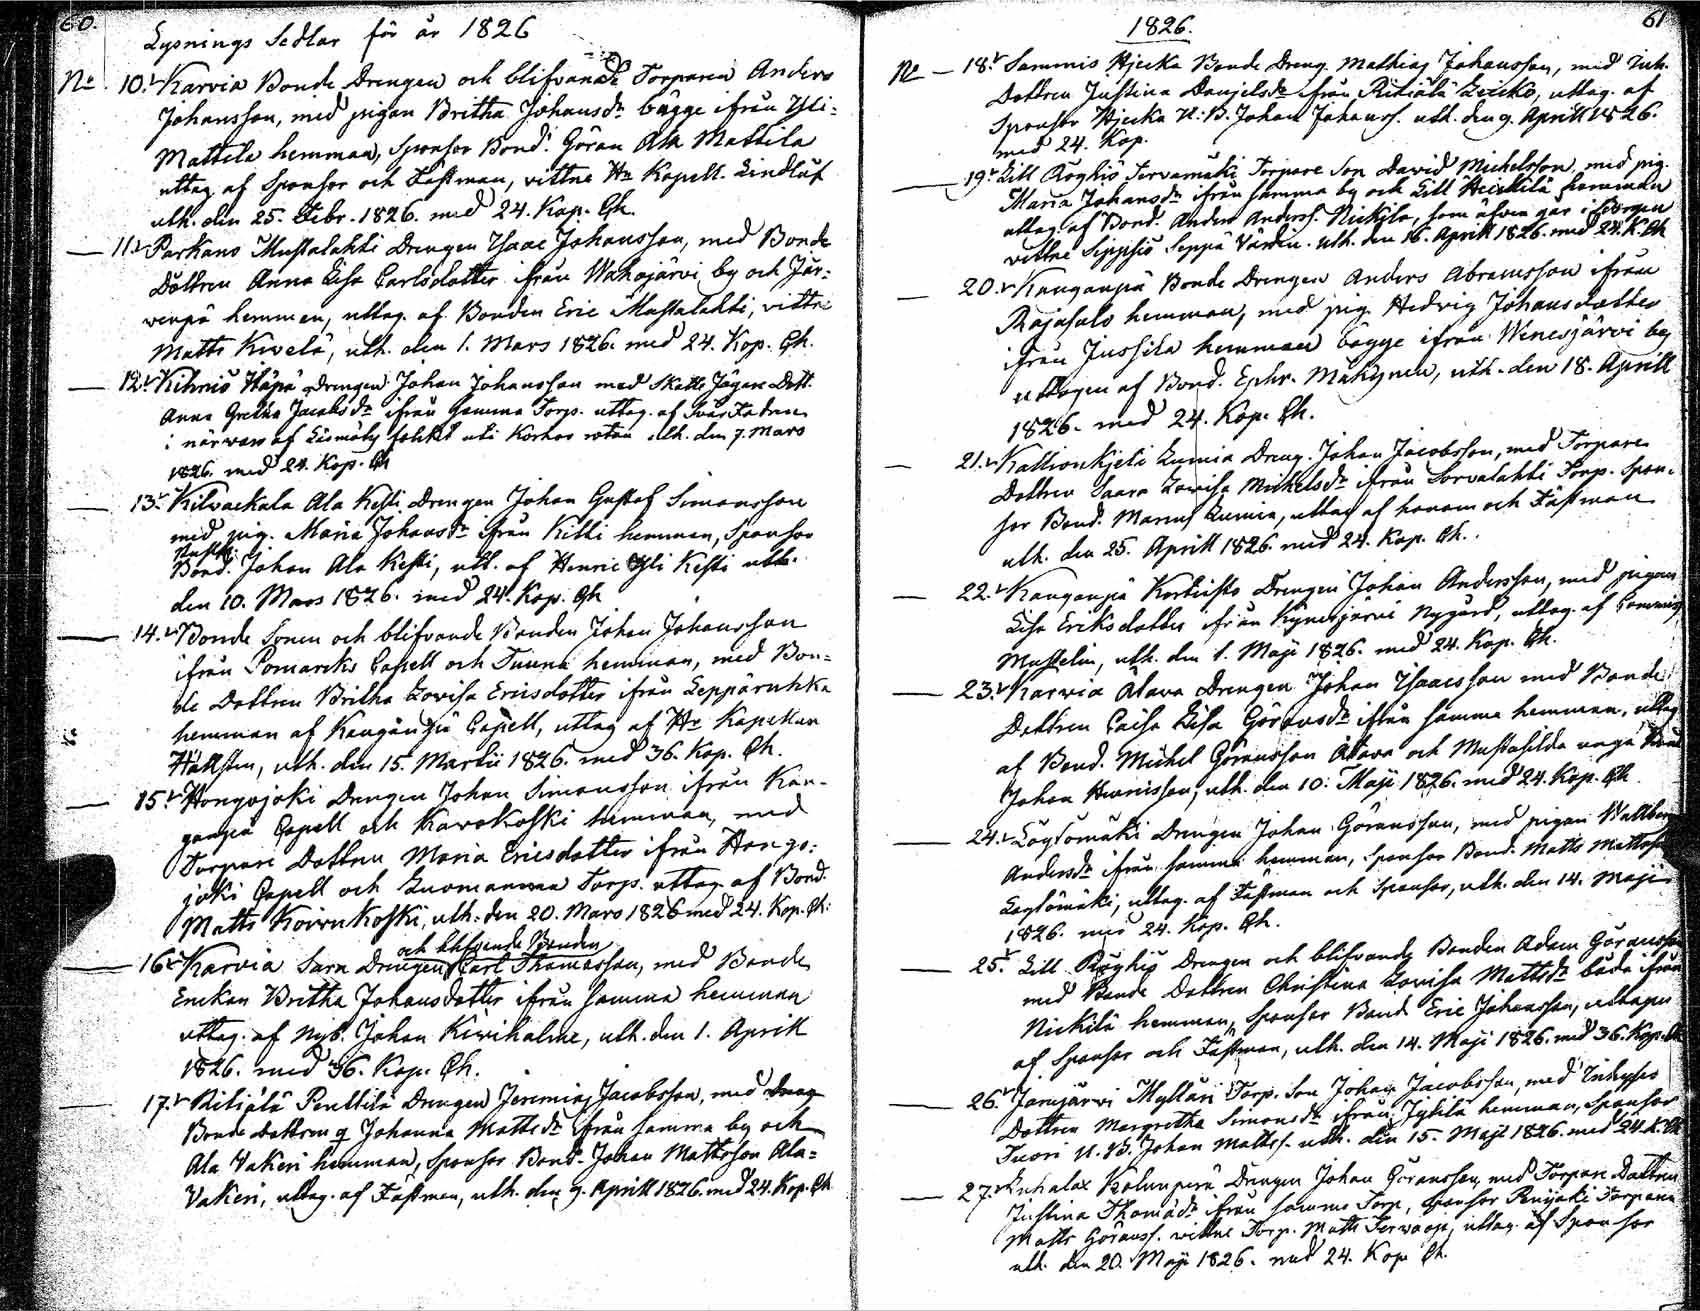 60.
Lysnings Sedlar för år 1826
No 10. Karvia Bonde Drengen och blifvande Torparen Anders
Johansson, med pigan Britha Johansdr bägge ifrån Yli-
Mattila hemman, Sponsor Bond. Göran Ala Mattila
uttag. af Sponsor och Fästman, vittne Hr Kapell. Lindlöf
uth. den 25. Febr. 1826. med 24. Kop. Rh.
11. Parkano Mustalahti Drengen Isaac Johansson, med Bonde
Dottren Anna Lisa Carlsdotter ifrån Wahojärvi by och Jär-
venpä hemman, uttag. af Bonden Eric Mustalahti, vittne
Matts Kivelä, uth. den 1. Mars 1826. med 24. Kop. Rh.
12. Kihniö Häpä Drengen Johan Johansson med Skatte Jägare Dott.
Anna Gretha Jacobsdr ifrån samma Torp. uttag. af Svär Fadren
i närvaro af folket uti Korhos rotan uth. den 7. Mars
1826. med 24. Kop. Rh
13. Kilvackala Ala Kesti Drengen Johan Gustaf Simonsson
med pig. Maria Johansdr ifrån Kitti hemman, Sponsor
Bond. Johan Ala Kesti, utt. af Henric Yli Kesti uth.
den 10. Mars 1826. med 24. Kop. Rh
14. Bonde Sonen och blifvande Bonden Johan Johansson
ifrån Pomarcks Capell och Tuuna hemman, med Bon-
de Dottren Britha Lovisa Ericsdotter ifrån Leppäruhka
hemman af Kangånpä Capell, uttag af Hr Kapellan
Hällsten, uth. den 15. Martii 1826. med 36. Kop. Rh.
15. Hongojoki Drengen Johan Simonsson ifrån Kan-
ganpä Capell och Karokoski hemman, med
Torpare Dottren Maria Ericsdotter ifrån Hongo-
joki Capell och Luomanmaa Torp. uttag. af Bond.
Matts Koivukoski, uth. den 20. Mars 1826 med 24. Kop. Rh.
och blifvande Bonden
16. Karvia Sara Drengen Carl Thomasson, med Bonde
Enckan Britha Johansdotter ifrån samma hemman
uttag. af Nyb. Johan Kivihalme, uth. den 1. Aprill
1826. med 36. Kop. Rh.
17. Ritiälä Penttilä Drengen Jeremias Jacobsson, med
Bonde Dottren Johanna Mattsdr ifrån samma by och
Ala Vakeri hemman, Sponsor Bond. Johan Mattsson Ala-
Vakeri, uttag. af Fästman, uth. den 9. Aprill 1826. med 24. Kop. Rh
1826.
61
No 18. Sammis Hjecka Bonde Dreng. Mathias Johansson, med Inh.
Dottren Justina Danjelsdr ifrån Ritiälä, uttag. af
Sponsor Hjecka U. B. Johan Johanss. uth. den 9. Aprill 1826.
med 24. Kop.
19. Lill Röyhiö Tervamäki Torpare Son David Michelsson, med pig.
Maria Johansdr ifrån samma by och Lill Heickilä hemman
uttag. af Bond. Anders Anderss. Nickilä, som äfven går i Borgen
vittne Seppä Värdin. uth. den 16. Aprill 1826. med 24. K. Rh
20. Kanganpä Bonde Drengen Anders Abramsson ifrån
Rajasalo hemman, med pig. Hedvig Johansdotter
ifrån Jussila hemman bägge ifrån Wenesjärvi by
uttagen af Bond. Ephr. Mäkynen, uth. den 18. Aprill
1826. med 24. Kop. Rh.
21. Kallionkjeli Lumia Dreng. Johan Jacobsson, med Torpare
Dottren Saara Lovisa Michelsdr ifrån Sorvalahti Torp. Spon-
sor Bond. Marius Lumia, uttag af honom och Fästman
uth. den 25. Aprill 1826. med 24. Kop. Rh.
22. Kanganpä Drengen Johan Andersson, med pigan
Lisa Eriksdotter ifrån Kynäsjärvi Nygård, uttag. af Commis.
Mustelin, uth. den 1. Maji 1826. med 24. Kop. Rh.
23. Karvia Alava Drengen Johan Isaacsson med Bonde
Dottren Caisa Lisa Göransdr ifrån samma hemman, uttag
af Bond. Michel Göransson Alava och Mustasilda unga
Johan Henricsson, uth. den 10. Maji 1826. med 24. Kop. Rh
24. Löytömäki Drengen Johan Göransson, med pigan Wallborg
Andersdr ifrån samma hemman, Sponsor Bond. Matts Mattsson
Löytömäki, uttag. af Fästman och Sponsor, uth. den 14. Maji
1826. med 24. Kop. Rh.
25. Lill Röyhiö Drengen och blifvande Bonden Adam Göransson
med Bonde Dottren Christina Lovisa Mattsdr båda ifrån
Nickilä hemman, Sponsor Bond Eric Johansson, uttagen
af Sponsor och Fästman, uth. den 14. Maji 1826. med 36. Kop. Rh
26. Jämijärvi Myllärı Torp. Son Johan Jacobsson, med Inhyses
Dottren Margretha Simonsdr ifrån Jyllilä hemman, Sponsor
Tuori U. B. Johan Mattss. uth. den 15. Maji 1826. med 24. K. Rh
27. Luhalax Kolunperä Drengen Johan Göransson, med Torpare Dottren
Justina Thomadr ifrån samma Torp, Sponsor Torparen
Matts Göranss. vittne Torp. Matts Tervaoja, uttag. af Sponsor
uth. den 20. Maji 1826. med 24. Kop Rh.